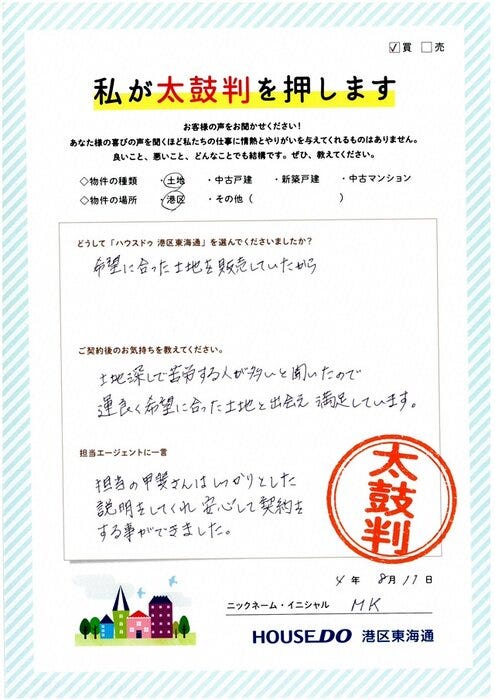 ☑買 ☐売
私が太鼓判を押します
お客様の声をお聞かせください！
あなた様の喜びの声を聞くほど私たちの仕事に情熱とやりがいを与えてくれるものはありません。
良いこと、悪いこと、どんなことでも結構です。ぜひ、教えてください。
◇物件の種類 ・土地 ・中古戸建 ・新築戸建 ・中古マンション
◇物件の場所 ・港区 ・その他（ ）
どうして「ハウスドゥ 港区東海通」を選んでくださいましたか？
希望に合った土地を販売していたから
ご契約後のお気持ちを教えてください。
土地探しで苦労する人が多いと聞いたので
運良く希望に合った土地と出会え 満足しています。
担当エージェントに一言
担当の甲斐さんはしっかりとした
説明をしてくれ 安心して契約を
する事ができました。
太鼓判
4 年 8月 11日
ニックネーム・イニシャル MK
HOUSEDO 港区東海通